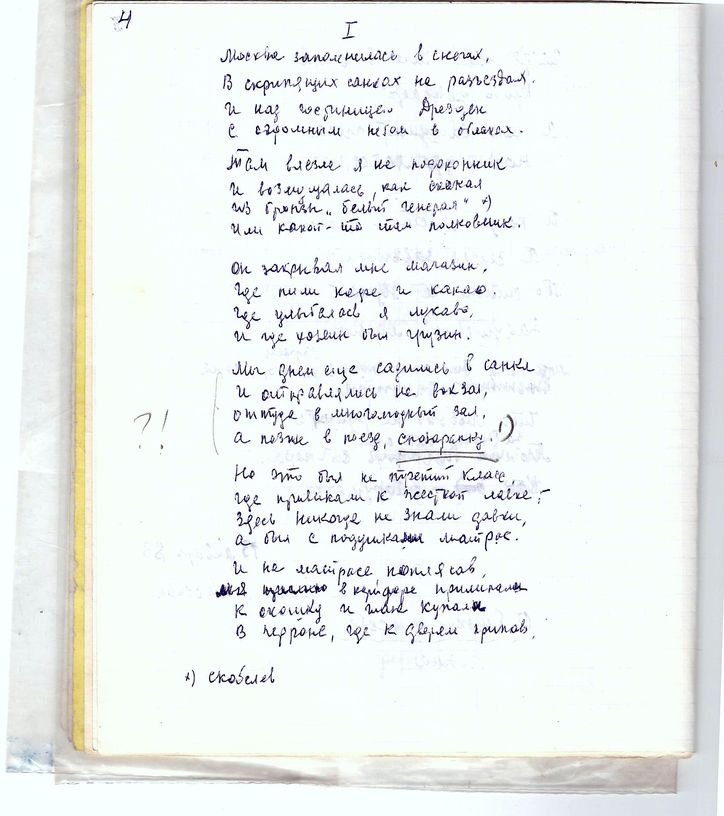 4
I
Москва запомнилась в снегах,
В скрипящих санках на разъездах.
И над гостиницей Дрезден
С огромным небом в облаках.
Там влезла я на подоконник
И возмущалась, как скакал
Из бронзы „белый генерал" х)
Или какой-то там полковник.
Он закрывал мне магазин,
Где пили кофе и какао,
Где улыбалась я лукаво,
И где хозяин был грузин.
Мы днем еще садились в санки
И отправлялись на вокзал,
Оттуда в многолюдный зал,
?!
А позже в поезд, спозаранку. 1)
Но это был не третий класс,
Где привыкали к жесткой лавке;
Здесь никогда не знали давки,
А был с подушками матрас.
И на матрасе поплясав,
в коридоре прилипали
К окошку и глаз купали
В перроне, где к дверям припав,
х) Скобелев